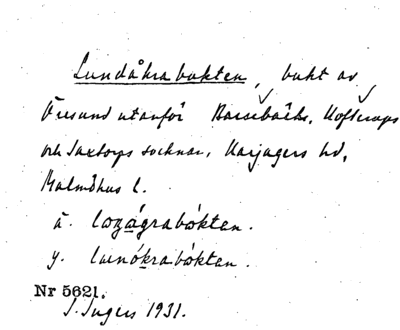 Lundåkrabukten, bukt av
Öresund utanför Barsebäcks, Hofterups
och Saxtorps socknar, Harjagers hd,
Malmöhus l.
ä.
y.
Nr 5621.
S. Ingers 1931.